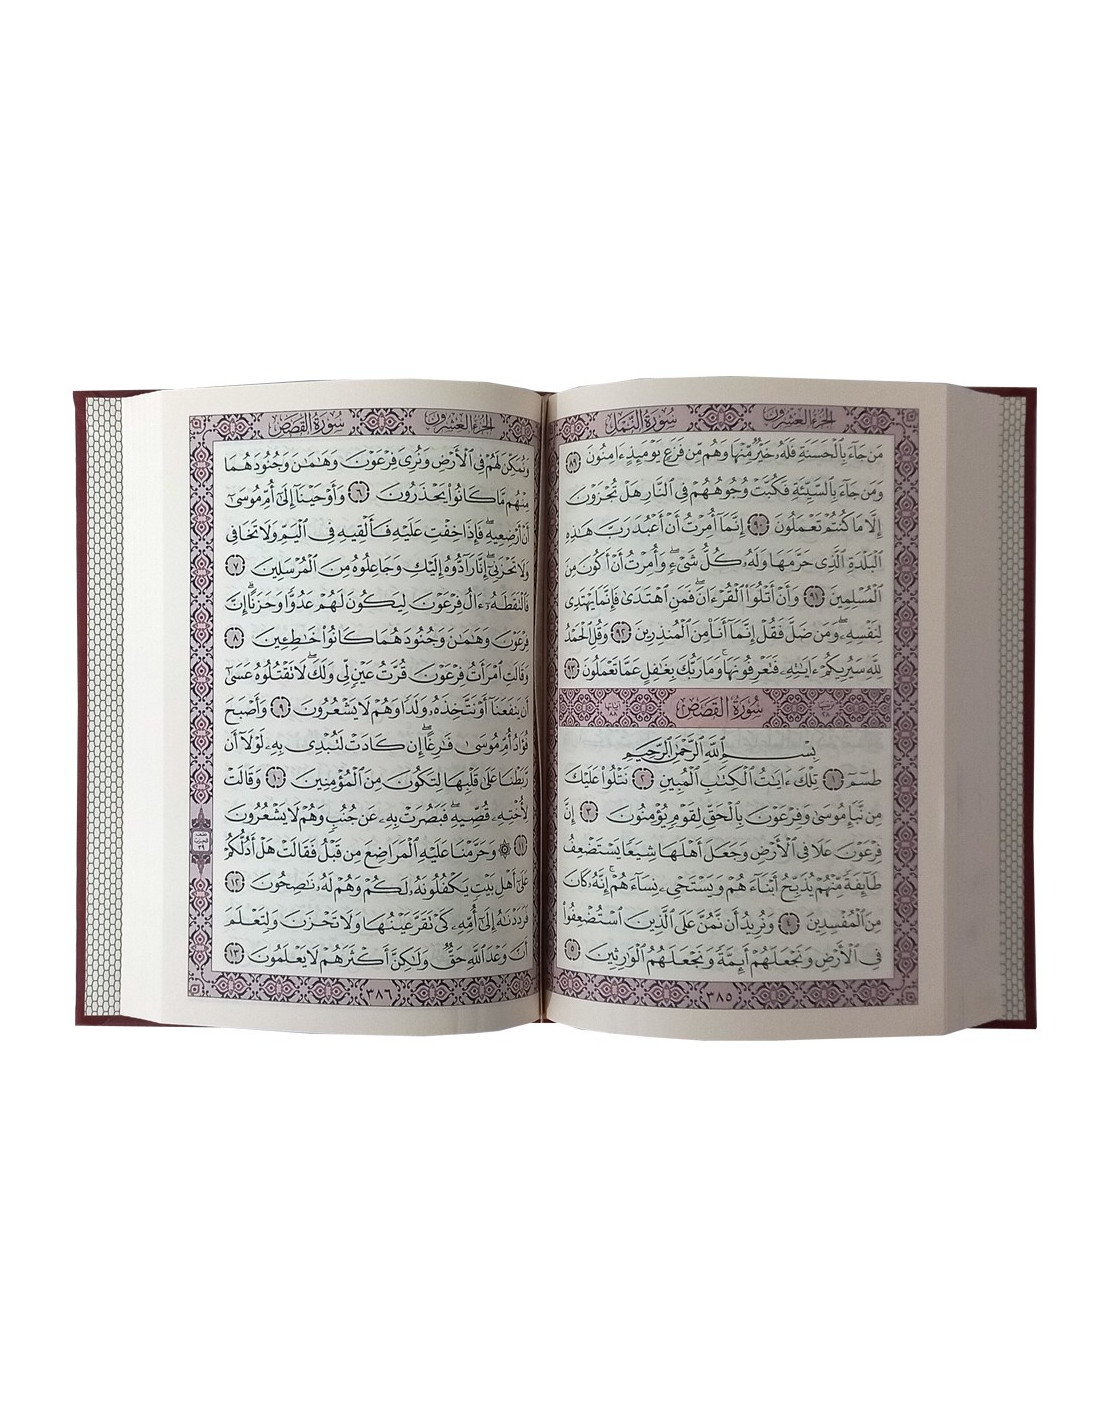 الجزء العشرون
سورة النمل
مَن جَآءَ بِٱلْحَسَنَةِ فَلَهُۥ خَيْرٌ مِّنْهَا وَهُم مِّن فَزَعٍ يَوْمَئِذٍ ءَامِنُونَ ٨٩
وَمَن جَآءَ بِٱلسَّيِّئَةِ فَكُبَّتْ وُجُوهُهُمْ فِى ٱلنَّارِ هَلْ تُجْزَوْنَ
إِلَّا مَا كُنتُمْ تَعْمَلُونَ ٩٠ إِنَّمَآ أُمِرْتُ أَنْ أَعْبُدَ رَبَّ هَٰذِهِ
ٱلْبَلْدَةِ ٱلَّذِى حَرَّمَهَا وَلَهُۥ كُلُّ شَىْءٍ ۖ وَأُمِرْتُ أَنْ أَكُونَ مِنَ
ٱلْمُسْلِمِينَ ٩١ وَأَنْ أَتْلُوَا۟ ٱلْقُرْءَانَ ۖ فَمَنِ ٱهْتَدَىٰ فَإِنَّمَا يَهْتَدِى
لِنَفْسِهِۦ ۖ وَمَن ضَلَّ فَقُلْ إِنَّمَآ أَنَا۠ مِنَ ٱلْمُنذِرِينَ ٩٢ وَقُلِ ٱلْحَمْدُ
لِلَّهِ سَيُرِيكُمْ ءَايَٰتِهِۦ فَتَعْرِفُونَهَا ۚ وَمَا رَبُّكَ بِغَٰفِلٍ عَمَّا تَعْمَلُونَ ٩٣
سُورَةُ القَصَصِ
بِسْمِ ٱللَّهِ ٱلرَّحْمَٰنِ ٱلرَّحِيمِ
طسٓمٓ ١ تِلْكَ ءَايَٰتُ ٱلْكِتَٰبِ ٱلْمُبِينِ ٢ نَتْلُوا۟ عَلَيْكَ
مِن نَّبَإِ مُوسَىٰ وَفِرْعَوْنَ بِٱلْحَقِّ لِقَوْمٍ يُؤْمِنُونَ ٣ إِنَّ
فِرْعَوْنَ عَلَا فِى ٱلْأَرْضِ وَجَعَلَ أَهْلَهَا شِيَعًا يَسْتَضْعِفُ
طَآئِفَةً مِّنْهُمْ يُذَبِّحُ أَبْنَآءَهُمْ وَيَسْتَحْىِۦ نِسَآءَهُمْ ۚ إِنَّهُۥ كَانَ
مِنَ ٱلْمُفْسِدِينَ ٤ وَنُرِيدُ أَن نَّمُنَّ عَلَى ٱلَّذِينَ ٱسْتُضْعِفُوا۟
فِى ٱلْأَرْضِ وَنَجْعَلَهُمْ أَئِمَّةً وَنَجْعَلَهُمُ ٱلْوَٰرِثِينَ ٥
٣٨٥
الجزء العشرون
سورة القصص
وَنُمَكِّنَ لَهُمْ فِى ٱلْأَرْضِ وَنُرِىَ فِرْعَوْنَ وَهَٰمَٰنَ وَجُنُودَهُمَا
مِنْهُم مَّا كَانُوا۟ يَحْذَرُونَ ٦ وَأَوْحَيْنَآ إِلَىٰٓ أُمِّ مُوسَىٰٓ
أَنْ أَرْضِعِيهِ ۖ فَإِذَا خِفْتِ عَلَيْهِ فَأَلْقِيهِ فِى ٱلْيَمِّ وَلَا تَخَافِى
وَلَا تَحْزَنِىٓ ۖ إِنَّا رَآدُّوهُ إِلَيْكِ وَجَاعِلُوهُ مِنَ ٱلْمُرْسَلِينَ ٧
فَٱلْتَقَطَهُۥٓ ءَالُ فِرْعَوْنَ لِيَكُونَ لَهُمْ عَدُوًّا وَحَزَنًا ۗ إِنَّ
فِرْعَوْنَ وَهَٰمَٰنَ وَجُنُودَهُمَا كَانُوا۟ خَٰطِـِٔينَ ٨
وَقَالَتِ ٱمْرَأَتُ فِرْعَوْنَ قُرَّتُ عَيْنٍ لِّى وَلَكَ ۖ لَا تَقْتُلُوهُ عَسَىٰٓ
أَن يَنفَعَنَآ أَوْ نَتَّخِذَهُۥ وَلَدًا وَهُمْ لَا يَشْعُرُونَ ٩ وَأَصْبَحَ
فُؤَادُ أُمِّ مُوسَىٰ فَٰرِغًا ۖ إِن كَادَتْ لَتُبْدِى بِهِۦ لَوْلَآ أَن
رَّبَطْنَا عَلَىٰ قَلْبِهَا لِتَكُونَ مِنَ ٱلْمُؤْمِنِينَ ١٠ وَقَالَتْ
لِأُخْتِهِۦ قُصِّيهِ ۖ فَبَصُرَتْ بِهِۦ عَن جُنُبٍ وَهُمْ لَا يَشْعُرُونَ
١١ ۞ وَحَرَّمْنَا عَلَيْهِ ٱلْمَرَاضِعَ مِن قَبْلُ فَقَالَتْ هَلْ أَدُلُّكُمْ
عَلَىٰٓ أَهْلِ بَيْتٍ يَكْفُلُونَهُۥ لَكُمْ وَهُمْ لَهُۥ نَٰصِحُونَ ١٢
فَرَدَدْنَٰهُ إِلَىٰٓ أُمِّهِۦ كَىْ تَقَرَّ عَيْنُهَا وَلَا تَحْزَنَ وَلِتَعْلَمَ
أَنَّ وَعْدَ ٱللَّهِ حَقٌّ وَلَٰكِنَّ أَكْثَرَهُمْ لَا يَعْلَمُونَ ١٣
٣٨٦